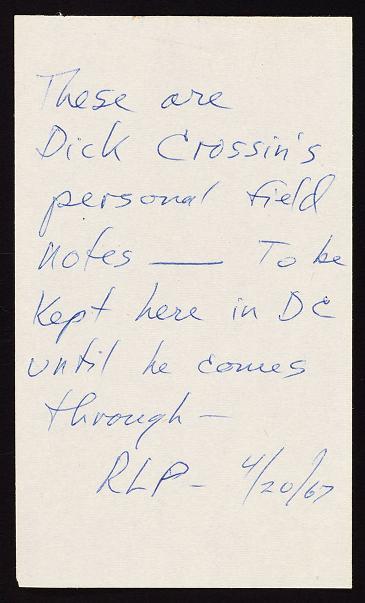 These are
Dick Crossin's
personal field
notes — To be
Kept here in DC
until he comes
through —
RLP - 4/20/67